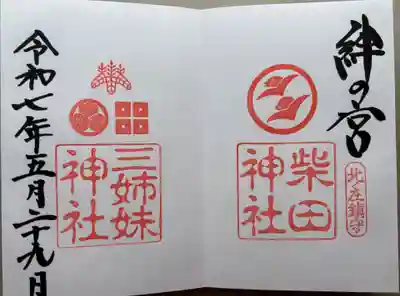 絆の宮
北之庄鎮守
柴田
神社
三姉妹
神社
令和七年五月二十九日